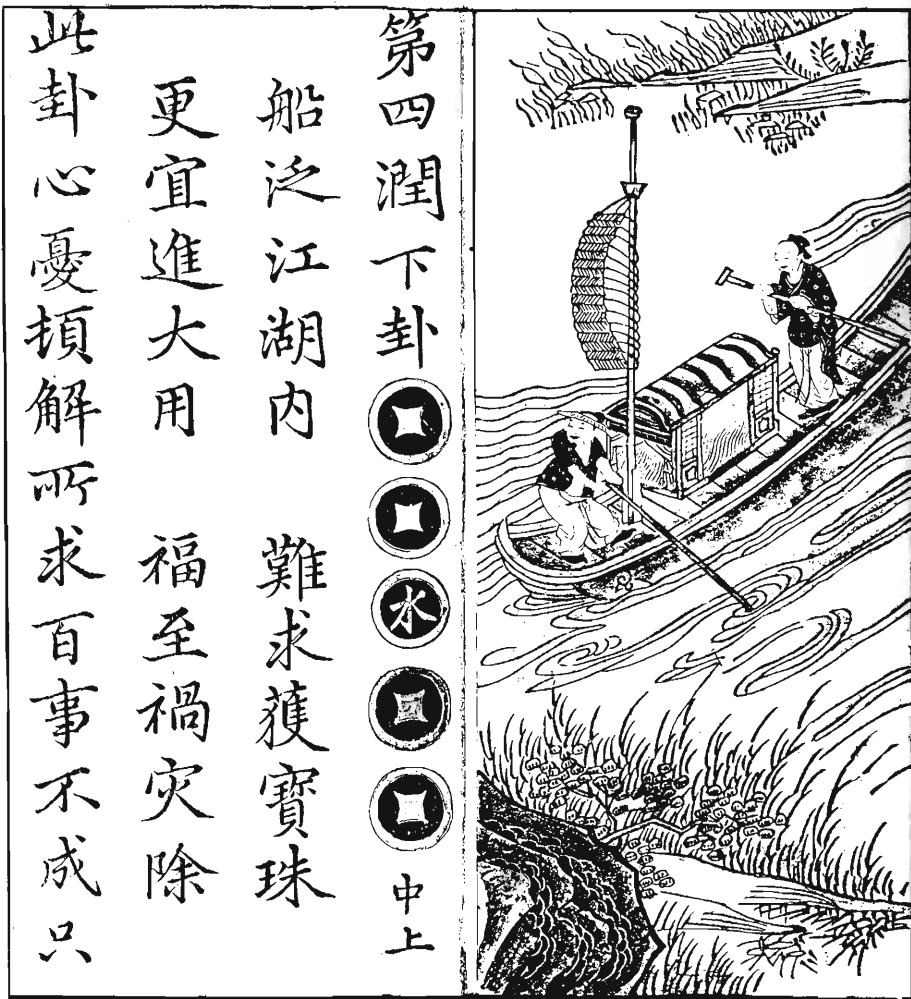 第四潤下卦 水 中上
船泛江湖内 難求獲寶珠
更宜進大用 福至禍灾除
此卦心憂頓解所求百事不成只